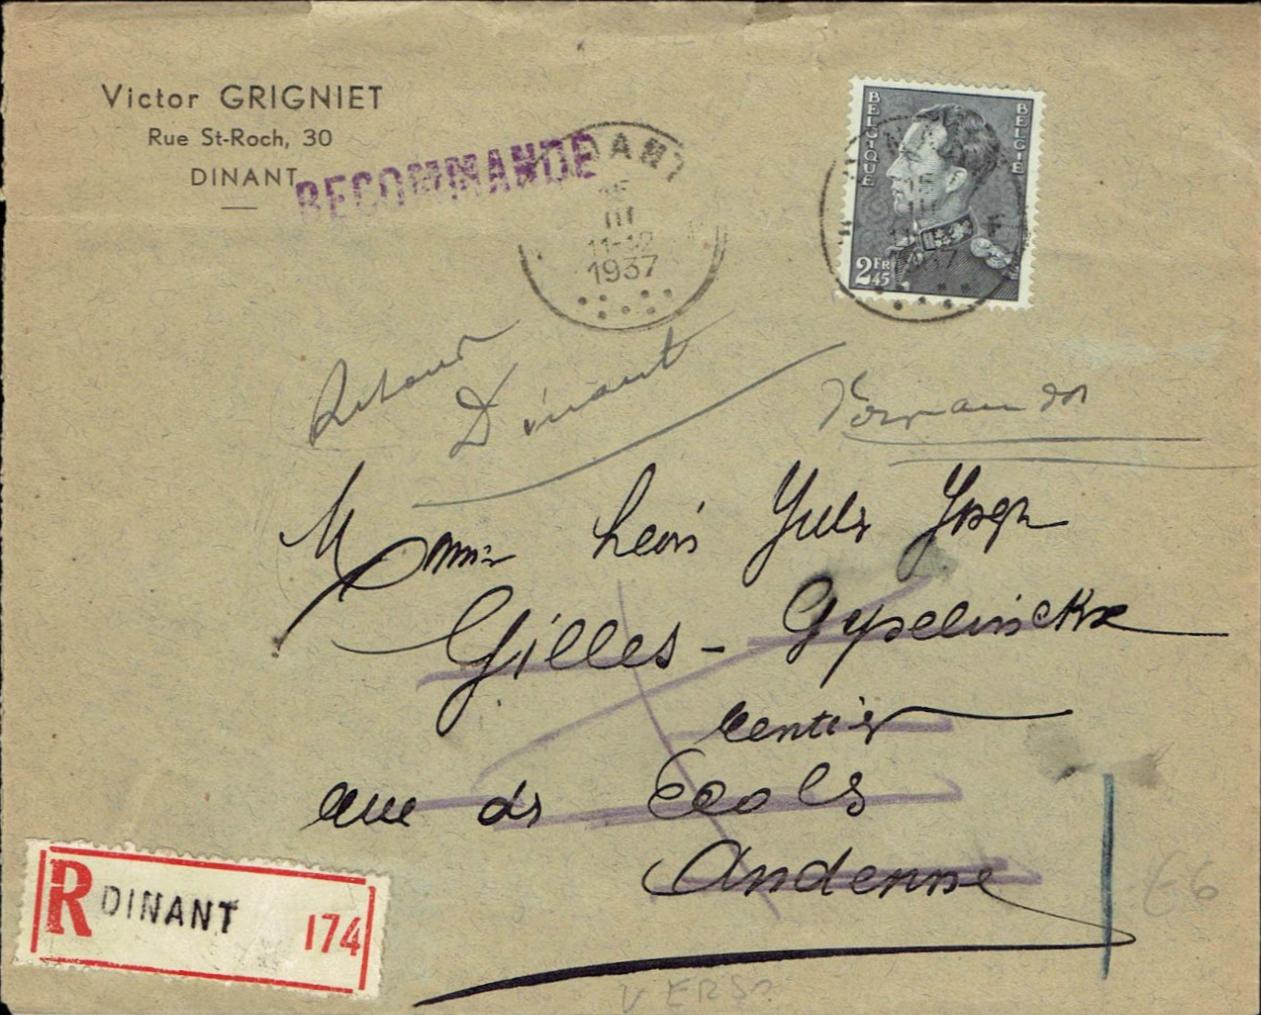 Victor GRIGNIET
Rue St-Roch, 30
DINANT
RECOMMANDE
DINANT
15
III
11-12
1937
BELGIQUE
BELGIE
2FR45
Retour
Dinant
Léon Jules Joseph
Gilles - Gyselinckx
rentier
rue des Ecoles
Andenne
R DINANT 174
66
VERSO